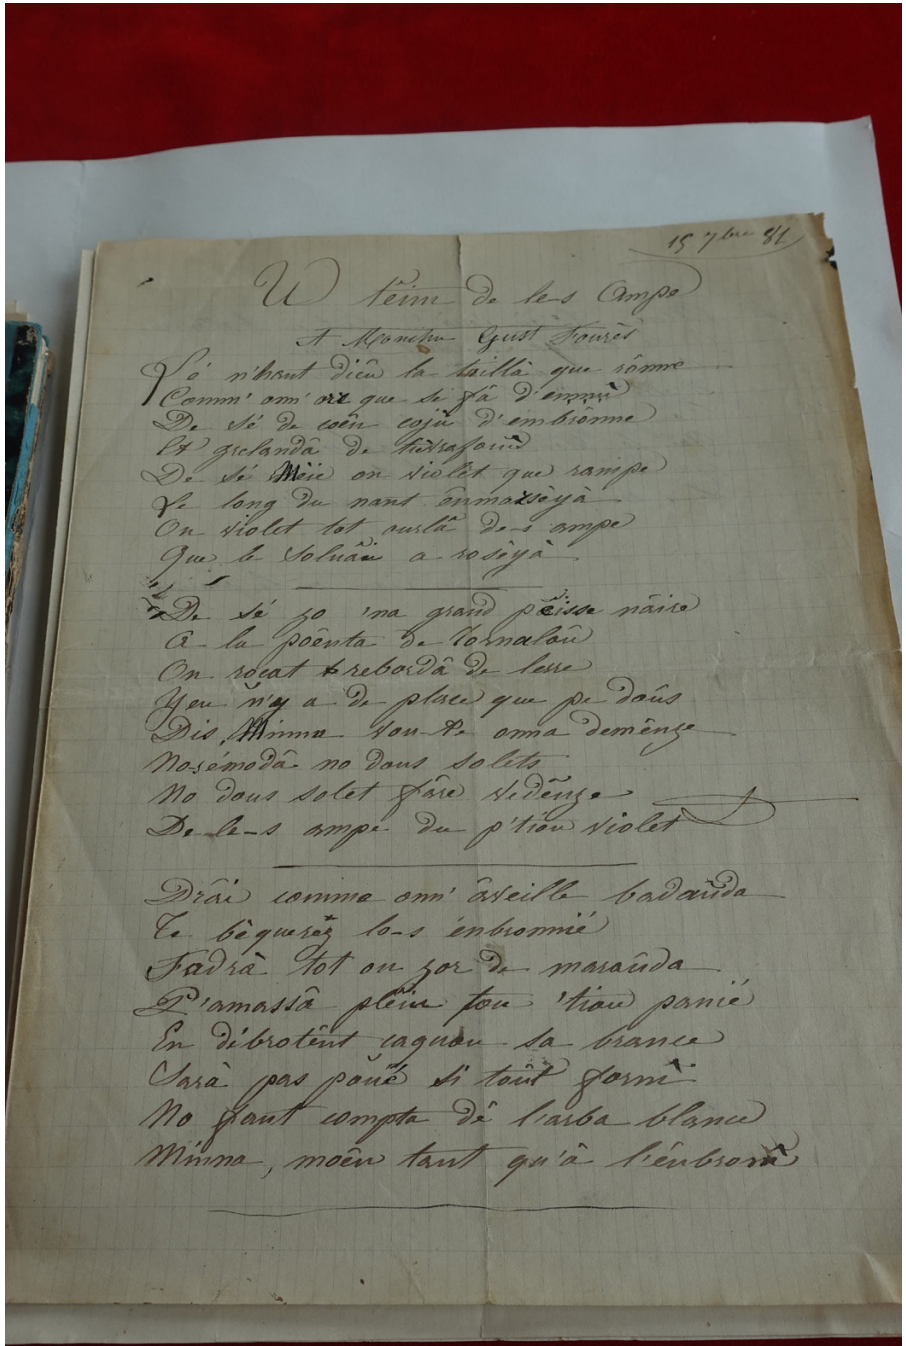 15 7bre 81
U têim de le-s Ampe
A Monchu Gust Fourès
Lé n'haut diêu la taillà que rônne
Comm' onn' ort que se fâ d'
De sé de coên cojù d'embrônne
Et grelandâ de
De sé Mëie on violët que rampe
Le long du nant ênmorsèyà
On violet tot ourlâ de-s ampe
Que le Soluâi a rosèyà
De sé zo 'na grand pêisse nâire
A la poênta de Tornalaû
On rocat rebordâ de lerre
Yeu n'y a de place que pe daûs
Dis, Minna vou-te onna demênze
No-s-émodâ no dous solets
No dous solet fâre vedênze
De le-s ampe du p'tiou violet
Drâi comma onn' âveille badaûda
Te bèquerêz lo-s énbronnié
Fadrà tot ou zor de maraûda
P'amassâ plêin tou 'tiou panié
En débrotênt cagnou sa brance
Sarà pas poué si toût forni
No faut compta dê l'arba blance
Minna, moên tant qu'à l'ênbronâ